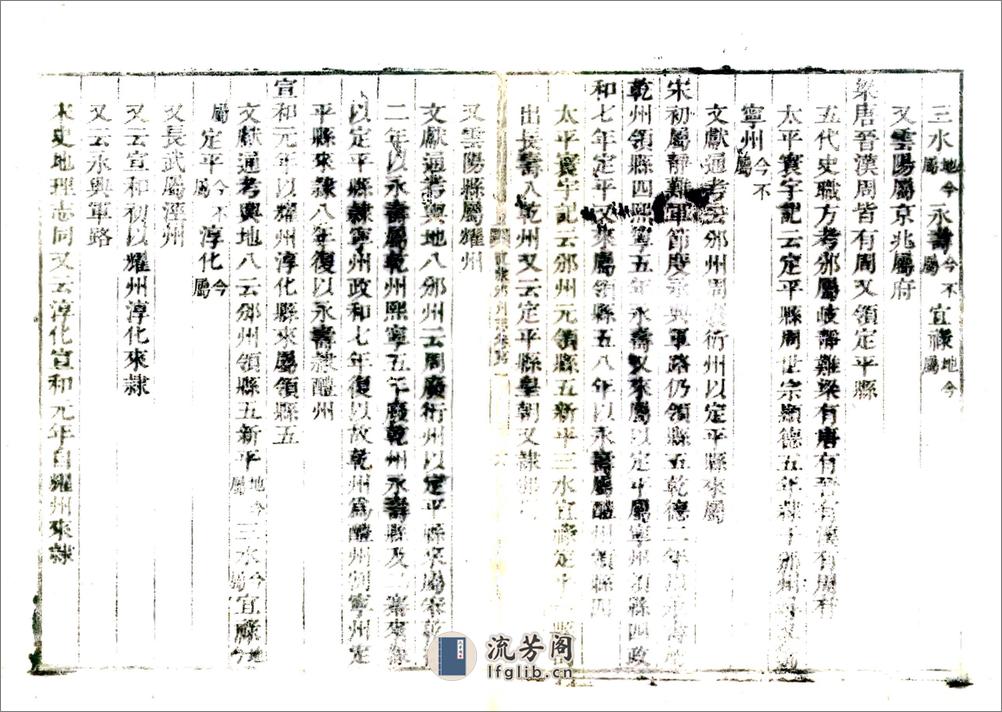 三水地今屬永壽今不屬宜祿地今屬
又雲陽屬京兆屬府
梁唐晉漢周皆有周又領定平縣
五代史職方考邠屬岐靜難梁有唐有晉有漢有周有
太平寰宇記云定平縣周世宗顯德五年隸于邠州
寧州今不屬
文獻通考云邠州周衍州以定平縣來屬
宋初屬靜難軍節度永興軍路仍領縣五乾德二年以永壽
乾州領縣四熙寧五年永壽又來屬以定平屬寧州領縣四政
和七年定平又來屬領縣五八年以永壽屬醴州領縣四
太平寰宇記云邠州元領縣五新平三水宜祿定平縣
出長壽入乾州又云定平縣皇朝又隸
又雲陽縣屬耀州
文獻通考輿地八邠州云周廢衍州以定平縣來屬宋乾
二年以永壽屬乾州熙寧五年廢乾州永壽縣及寨來
以定平縣隸寧州政和七年復以故乾州為醴州割寧州定
平縣來隸八年復以永壽隸醴州
宣和元年以耀州淳化縣來屬領縣五
文獻通考輿地八云邠州領縣五新平地今屬三水今屬宜祿地今
屬定平今不屬淳化今屬
又長武屬涇州
又云宣和初以耀州淳化來隸
又云永興軍路
宋史地理志同又云淳化宣和元年自耀州來隸
流芳阁
lfglib.com